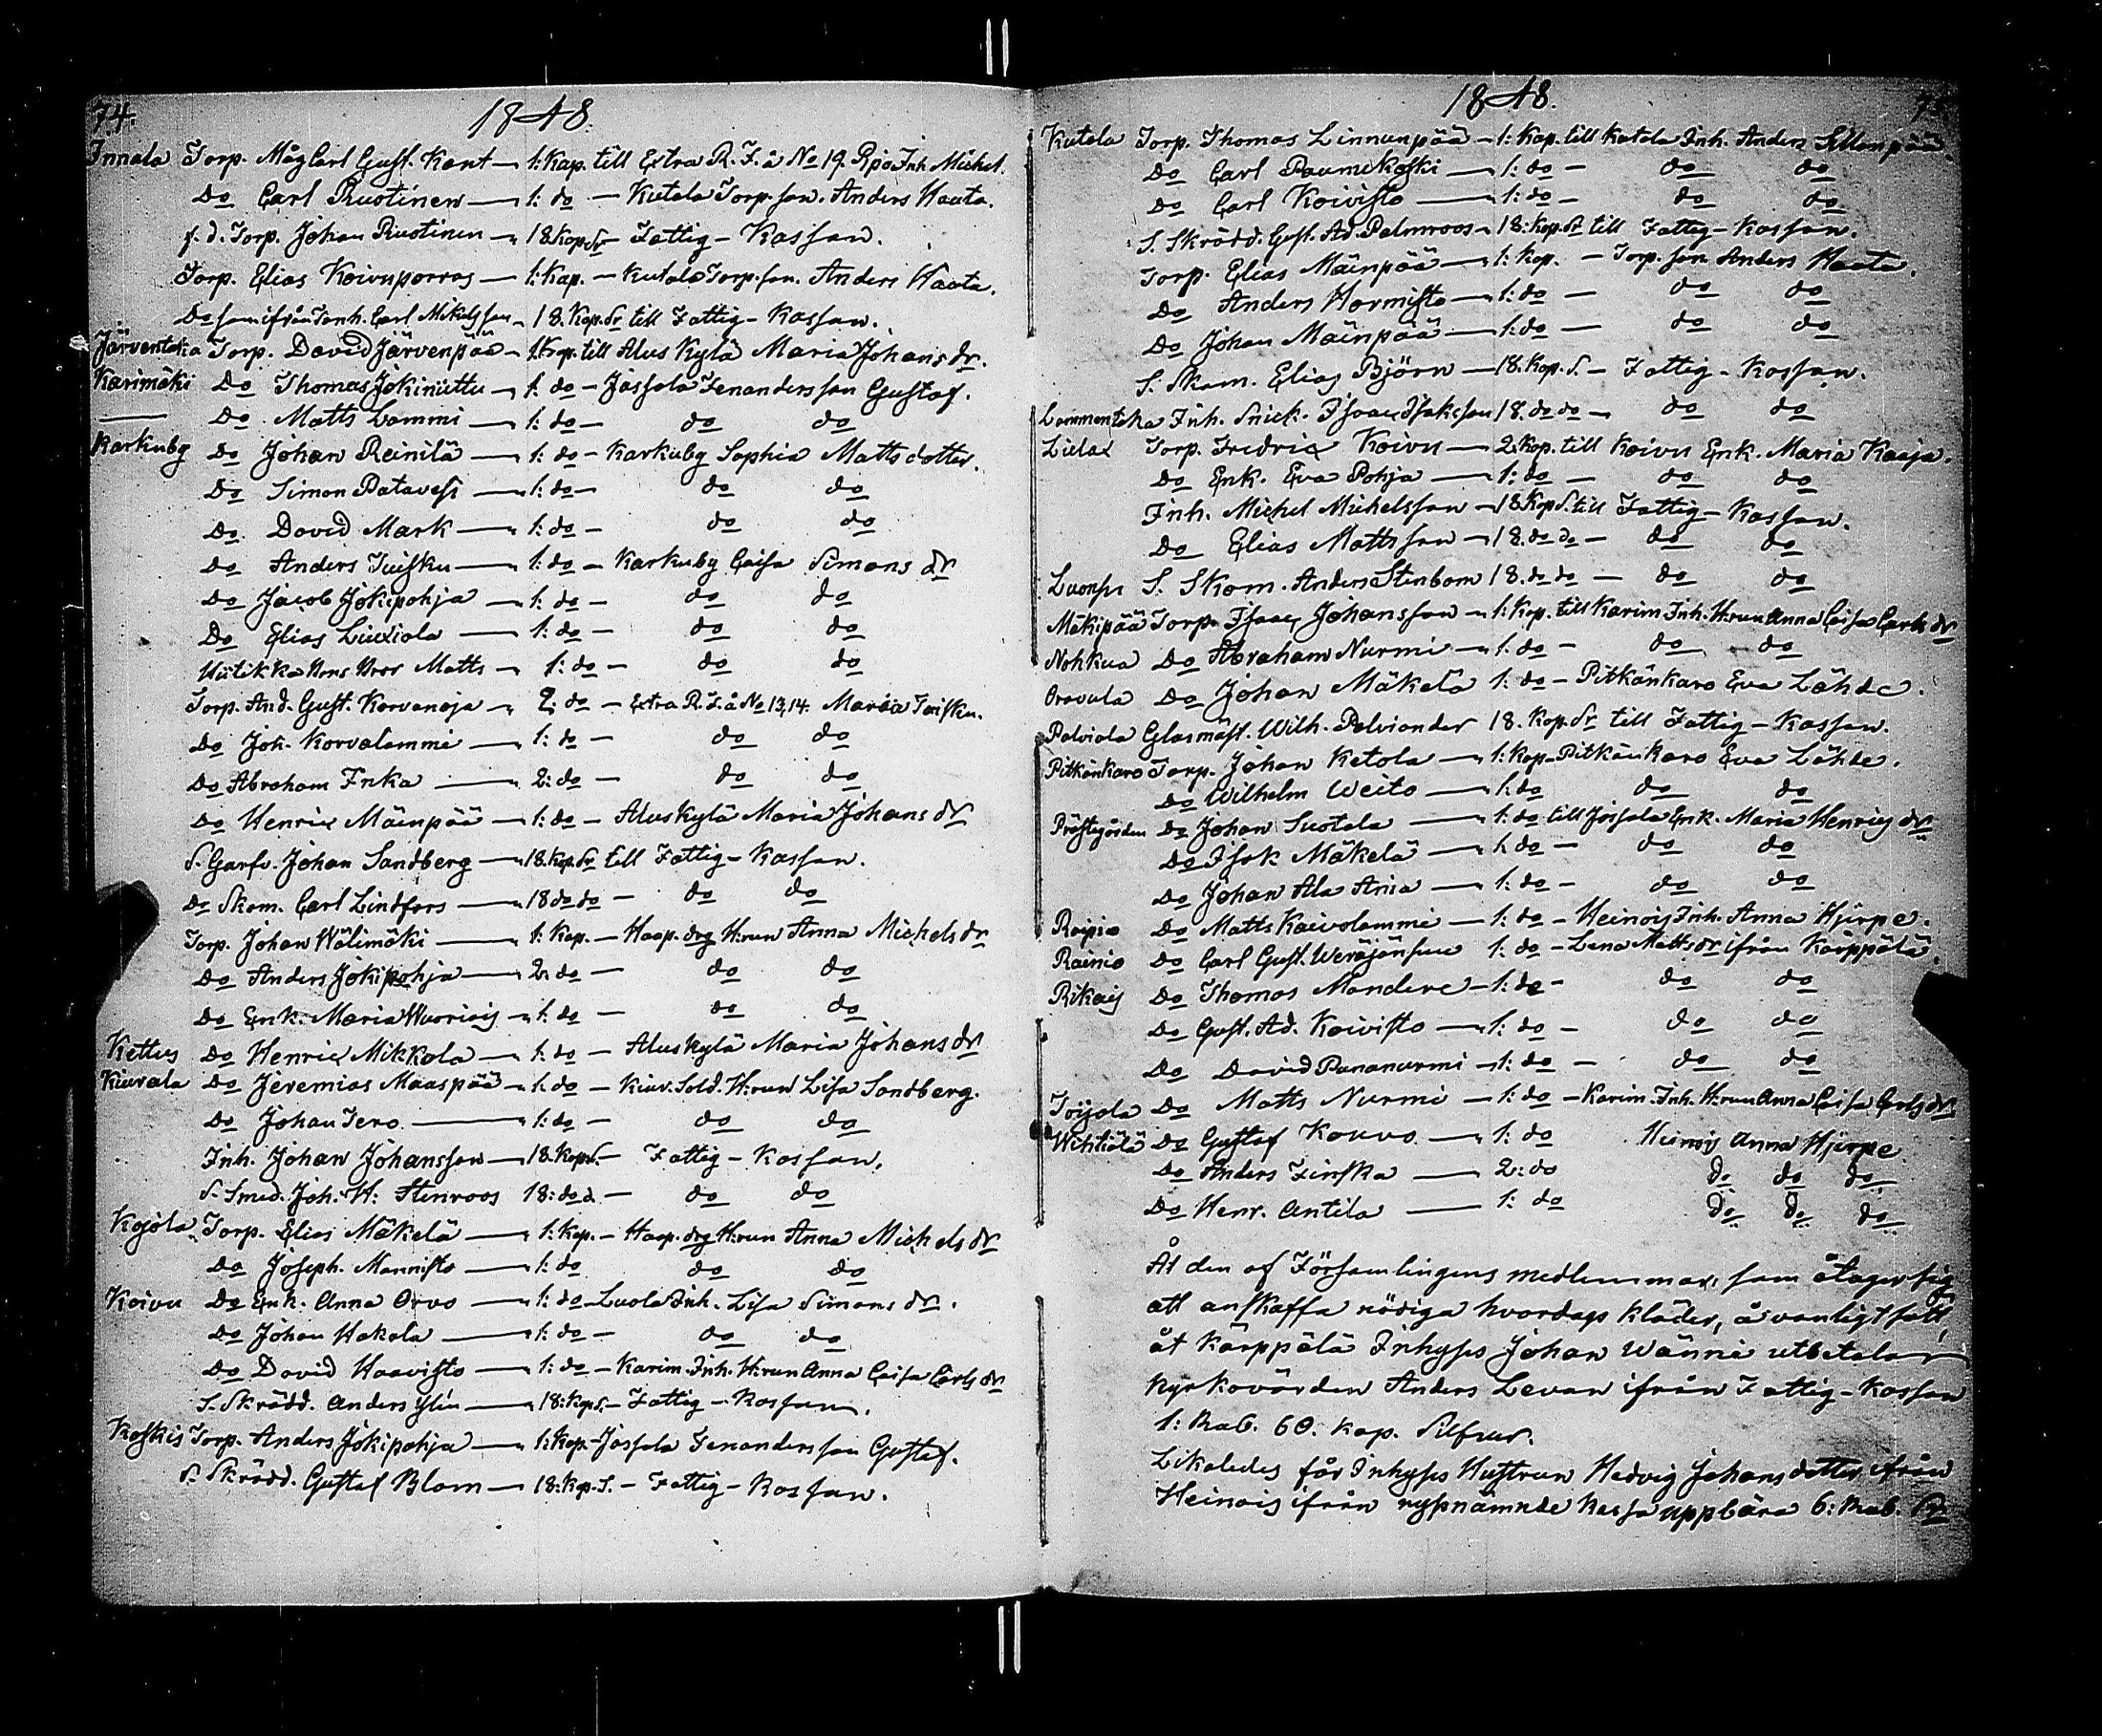 74.
1848.
Innala Torp. Måg Carl Gust. Kant — 1: Kap. till Extra R. F. å No 19. Rpä Inh. Michel.
Do Carl Rustinen — 1: do — Kutala Torp. son. Anders Haata.
f. d. Torp. Johan Rustinen — 18 Kop. Sr — Fattig-Kassan.
Torp. Elias Koivuporras — 1: Kap. — Kutala Torp. son. Anders Haata.
Do son ifrån Tonh. Carl Mikelsson — 18. Kop. Sr till Fattig-Kassan.
Järventaka Torp. David Järvenpää — 1. Kap. till Alus Kylä Maria Johans dr.
Karimäki Do Thomas Jokiniittu — 1: do — Jassola Fenanderson Gustaf.
Do Matts Lammi — 1: do — do do
Karkuby Do Johan Reinilä — 1: do — Karkuby Sophia Mattsdotter.
Do Simon Patavesi — 1: do — do do
Do David Mark — 1: do — do do
Do Anders Tuisku — 1: do — Karkuby Caisa Simons dr
Do Jacob Jokipohja — 1: do — do do
Do Elias Liuxiola — 1: do — do do
Uutikka Hons Bror Matts — 1: do — do do
Torp. And. Gust. Korvanoja — 2: do — Extra R. F. å No 13,14. Maria Tuisku.
Do Joh. Korvalammi — 1: do — do do
Do Abraham Inka — 2: do — do do
Do Henric Mäenpää — 1: do — Aluskylä Maria Johans dr
S. Garfv. Johan Sandberg — 18. Kop. Sr till Fattig-Kassan.
Do Skom. Carl Lindfors — 18 do do — do do
Torp. Johan Wälimäki — 1: Kap. — Haap. drg H:run Anna Michels dr
Do Anders Jokipohja — 2: do — do do
Do Enk. Maria Wuoriois — 1: do — do do
Kettus Do Henric Mikkola — 1: do — Aluskylä Maria Johans dr
Kiurala Do Jeremias Maaspää — 1: do — Kiur. Sold. H:run Lisa Sandberg.
Do Johan Tero — 1: do — do do
Inh. Johan Johansson — 18. Kop. S. — Fattig-Kassan.
S. Smed. Joh. H: Stenroos 18: do d. — do do
Kojola Torp. Elias Mäkelä — 1: Kap. — Haap. drg H:run Anna Michels dr
Do Joseph. Mannisto — 1: do do do
Koivu Do Enk. Anna Orvo — 1: do — Luola Inh. Lisa Simons dr.
Do Johan Hakala — 1: do — do do
Do David Haavisto — 1: do — Karim. Inh. H:run Anna Caisa Carls dr
S. Skrädd. Anders Ylin — 18: Kop. S. — Fattig-Kassan.
Koskis Torp. Anders Jokipohja — 1: Kap. — Jassola Fenanderson Gustaf.
S. Skrädd. Gustaf Blom — 18: Kop. S. — Fattig-Kassan.
1848.
75.
Kutala Torp. Thomas Linnunpää — 1: Kap. till Kutala Inh. Anders Sillanpää.
Do Carl Raumikoski — 1: do — do do
Do Carl Koivisto — 1: do — do do
S. Skrädd. Gust. Ad. Palmroos — 18: Kop. Sr till Fattig-Kassan.
Torp. Elias Mäinpää — 1: Kap. — Torp. son Anders Haata.
Do Anders Hormisto — 1: do — do do
Do Johan Mäinpää — 1: do — do do
S. Skom. Elias Björn — 18. Kop. S. — Fattig-Kassan.
Lammentaka Inh. Snick. Isaac Isaksson 18. do do — do do
Liulax Torp. Fredric Koivu — 2. Kap. till Koivu Enk. Maria Kaaja.
Do Enk. Eva Pohja — 1: do — do do
Inh. Michel Michelsson — 18 Kop S. till Fattig-Kassan.
Do Elias Mattsson — 18. do do — do do
S. Skom. Anders Stenbom 18. do do — do do
Mäkipää Torp. Isaac Johansson — 1: Kap. till Karim. Inh. H:run Anna Caisa Carls dr
Nohkua Do Abraham Nurmi — 1: do — do do
Oravala Do Johan Mäkelä 1: do — Pitkänkaro Eva Lähde.
Palviala Glasmäst. Wilh. Palviander 18. Kop. Sr till Fattig-Kassan.
Pitkänkaro Torp. Johan Ketola — 1: Kap. Pitkänkaro Eva Lähde.
Do Wilhelm Weito — 1: do do do
Prästegården Do Johan Suotala — 1: do till Jassola Enk. Maria Henrics dr
Do Isak Mäkelä — 1. do — do do
Do Johan Ala Aria — 1: do — do do
Raipio Do Matts Kaivolammi — 1: do — Heinois Inh. Anna Hjerpe.
Rainio Do Carl Gust. Weräjänsuu 1: do — Lena Matts dr ifrån Karppälä.
Rikais Do Thomas Mandere — 1: do — do do
Do Gust. Ad. Koivisto — 1: do — do do
Do David Punanurmi — 1: do — do do
Toijola Do Matts Nurmi — 1: do — Karim. Inh. H:run Anna Caisa Carls dr
Wihtiälä Do Gustaf Kouvo — 1: do Heinois Anna Hjerpe
Do Anders Finska — 2: do do do do
Do Henr. Antila — 1: do do do do
Åt den af Församlingens medlemmar, som åtager sig
att anskaffa nödiga hvardags kläder, å vanligt sätt,
åt Karppälä Inhyses Johan Wänni utbetalar
Kyrkovärden Anders Levan ifrån Fattig-Kassan
1: Rub. 60. kop. Silfver.
Likaledes får Inhyses Hustrun Hedvig Johans dotter ifrån
Heinois ifrån nyssnämnde Kassa uppbära 6: Rub. Sr